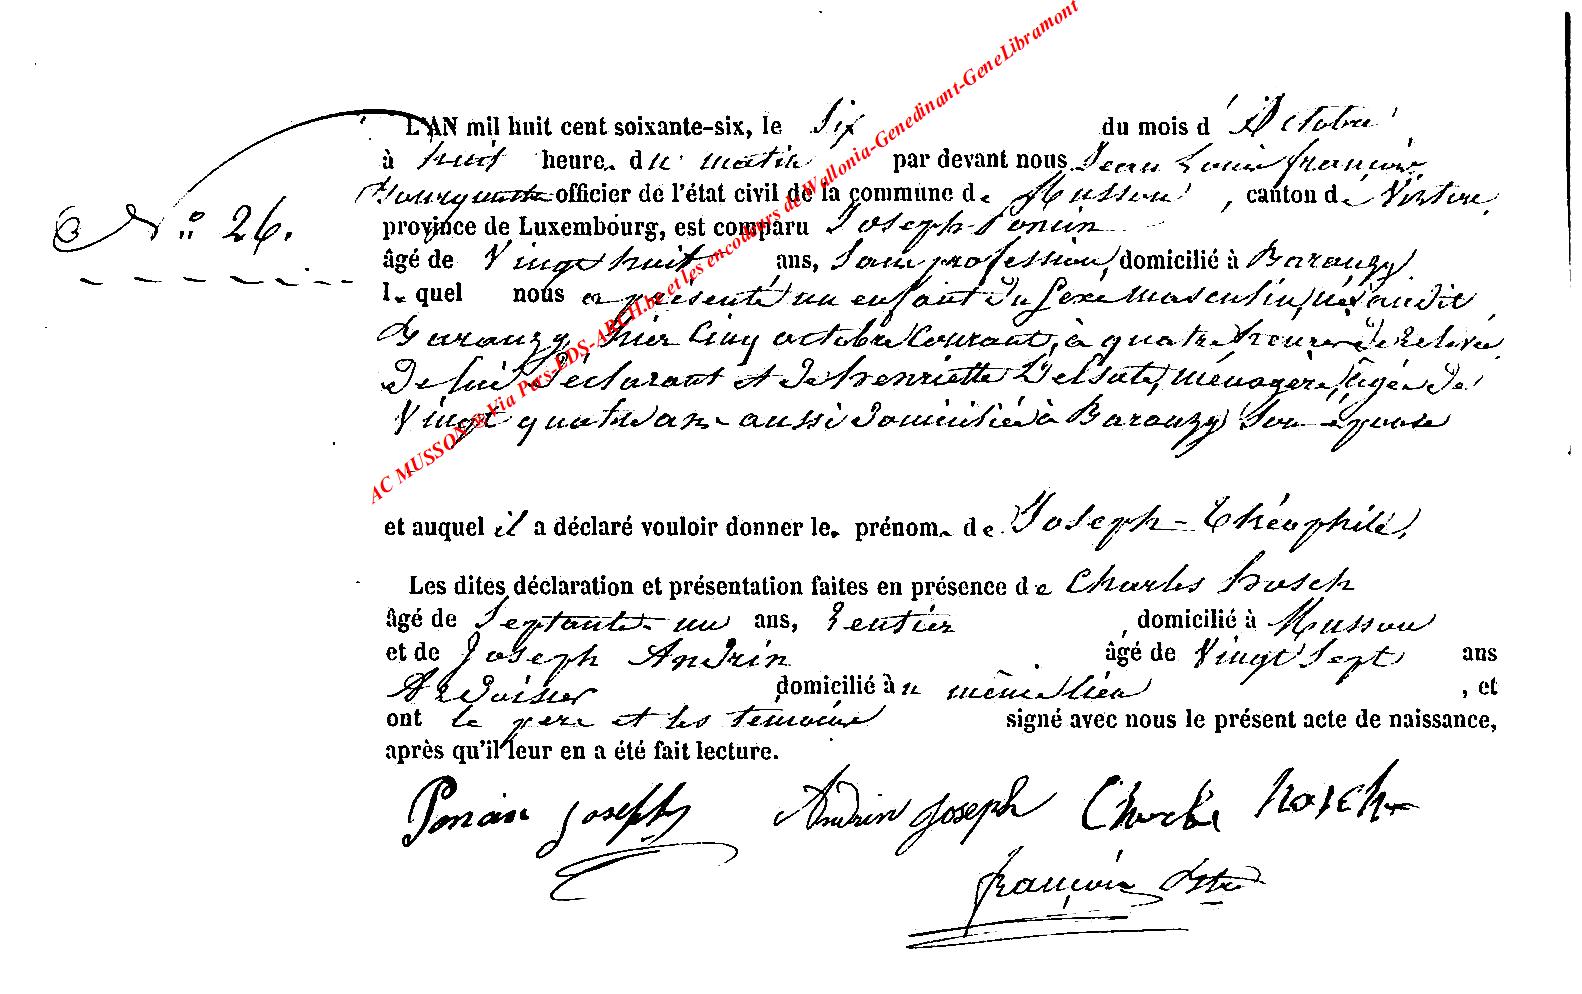 L'AN mil huit cent soixante-six, le Six du mois d' Octobre
à huit heure. du matin par devant nous Jean Louis françois
officier de l'état civil de la commune de Musson, canton de Virton,
N.° 26.
province de Luxembourg, est comparu Joseph Ponin
âgé de Vingt huit ans, Sans profession, domicilié à Baranzy.
le quel nous a présenté un enfant du Sexe masculin, né audit
Baranzy, hier Cinq octobre Courant, à quatre heures de relevée
de lui Déclarant et de henriette Delsate, ménagère, âgée de
Vingt quatre ans aussi domiciliée à Baranzy Son épouse
et auquel il a déclaré vouloir donner le. prénom. de Joseph-Théophile.
Les dites déclaration et présentation faites en présence de Charles
âgé de Septante-un ans, Rentier, domicilié à Musson
et de Joseph Andrin âgé de Vingt Sept ans
Ardoisier domicilié à même lieu, et
ont le père et les temoins signé avec nous le présent acte de naissance,
après qu'il leur en a été fait lecture.
Ponin Joseph Andrin Joseph Charles
françois
AC MUSSON & Via Pers-PDS-ARCH.be et les encodeurs de Wallonia-Genedinant-GeneLibramont